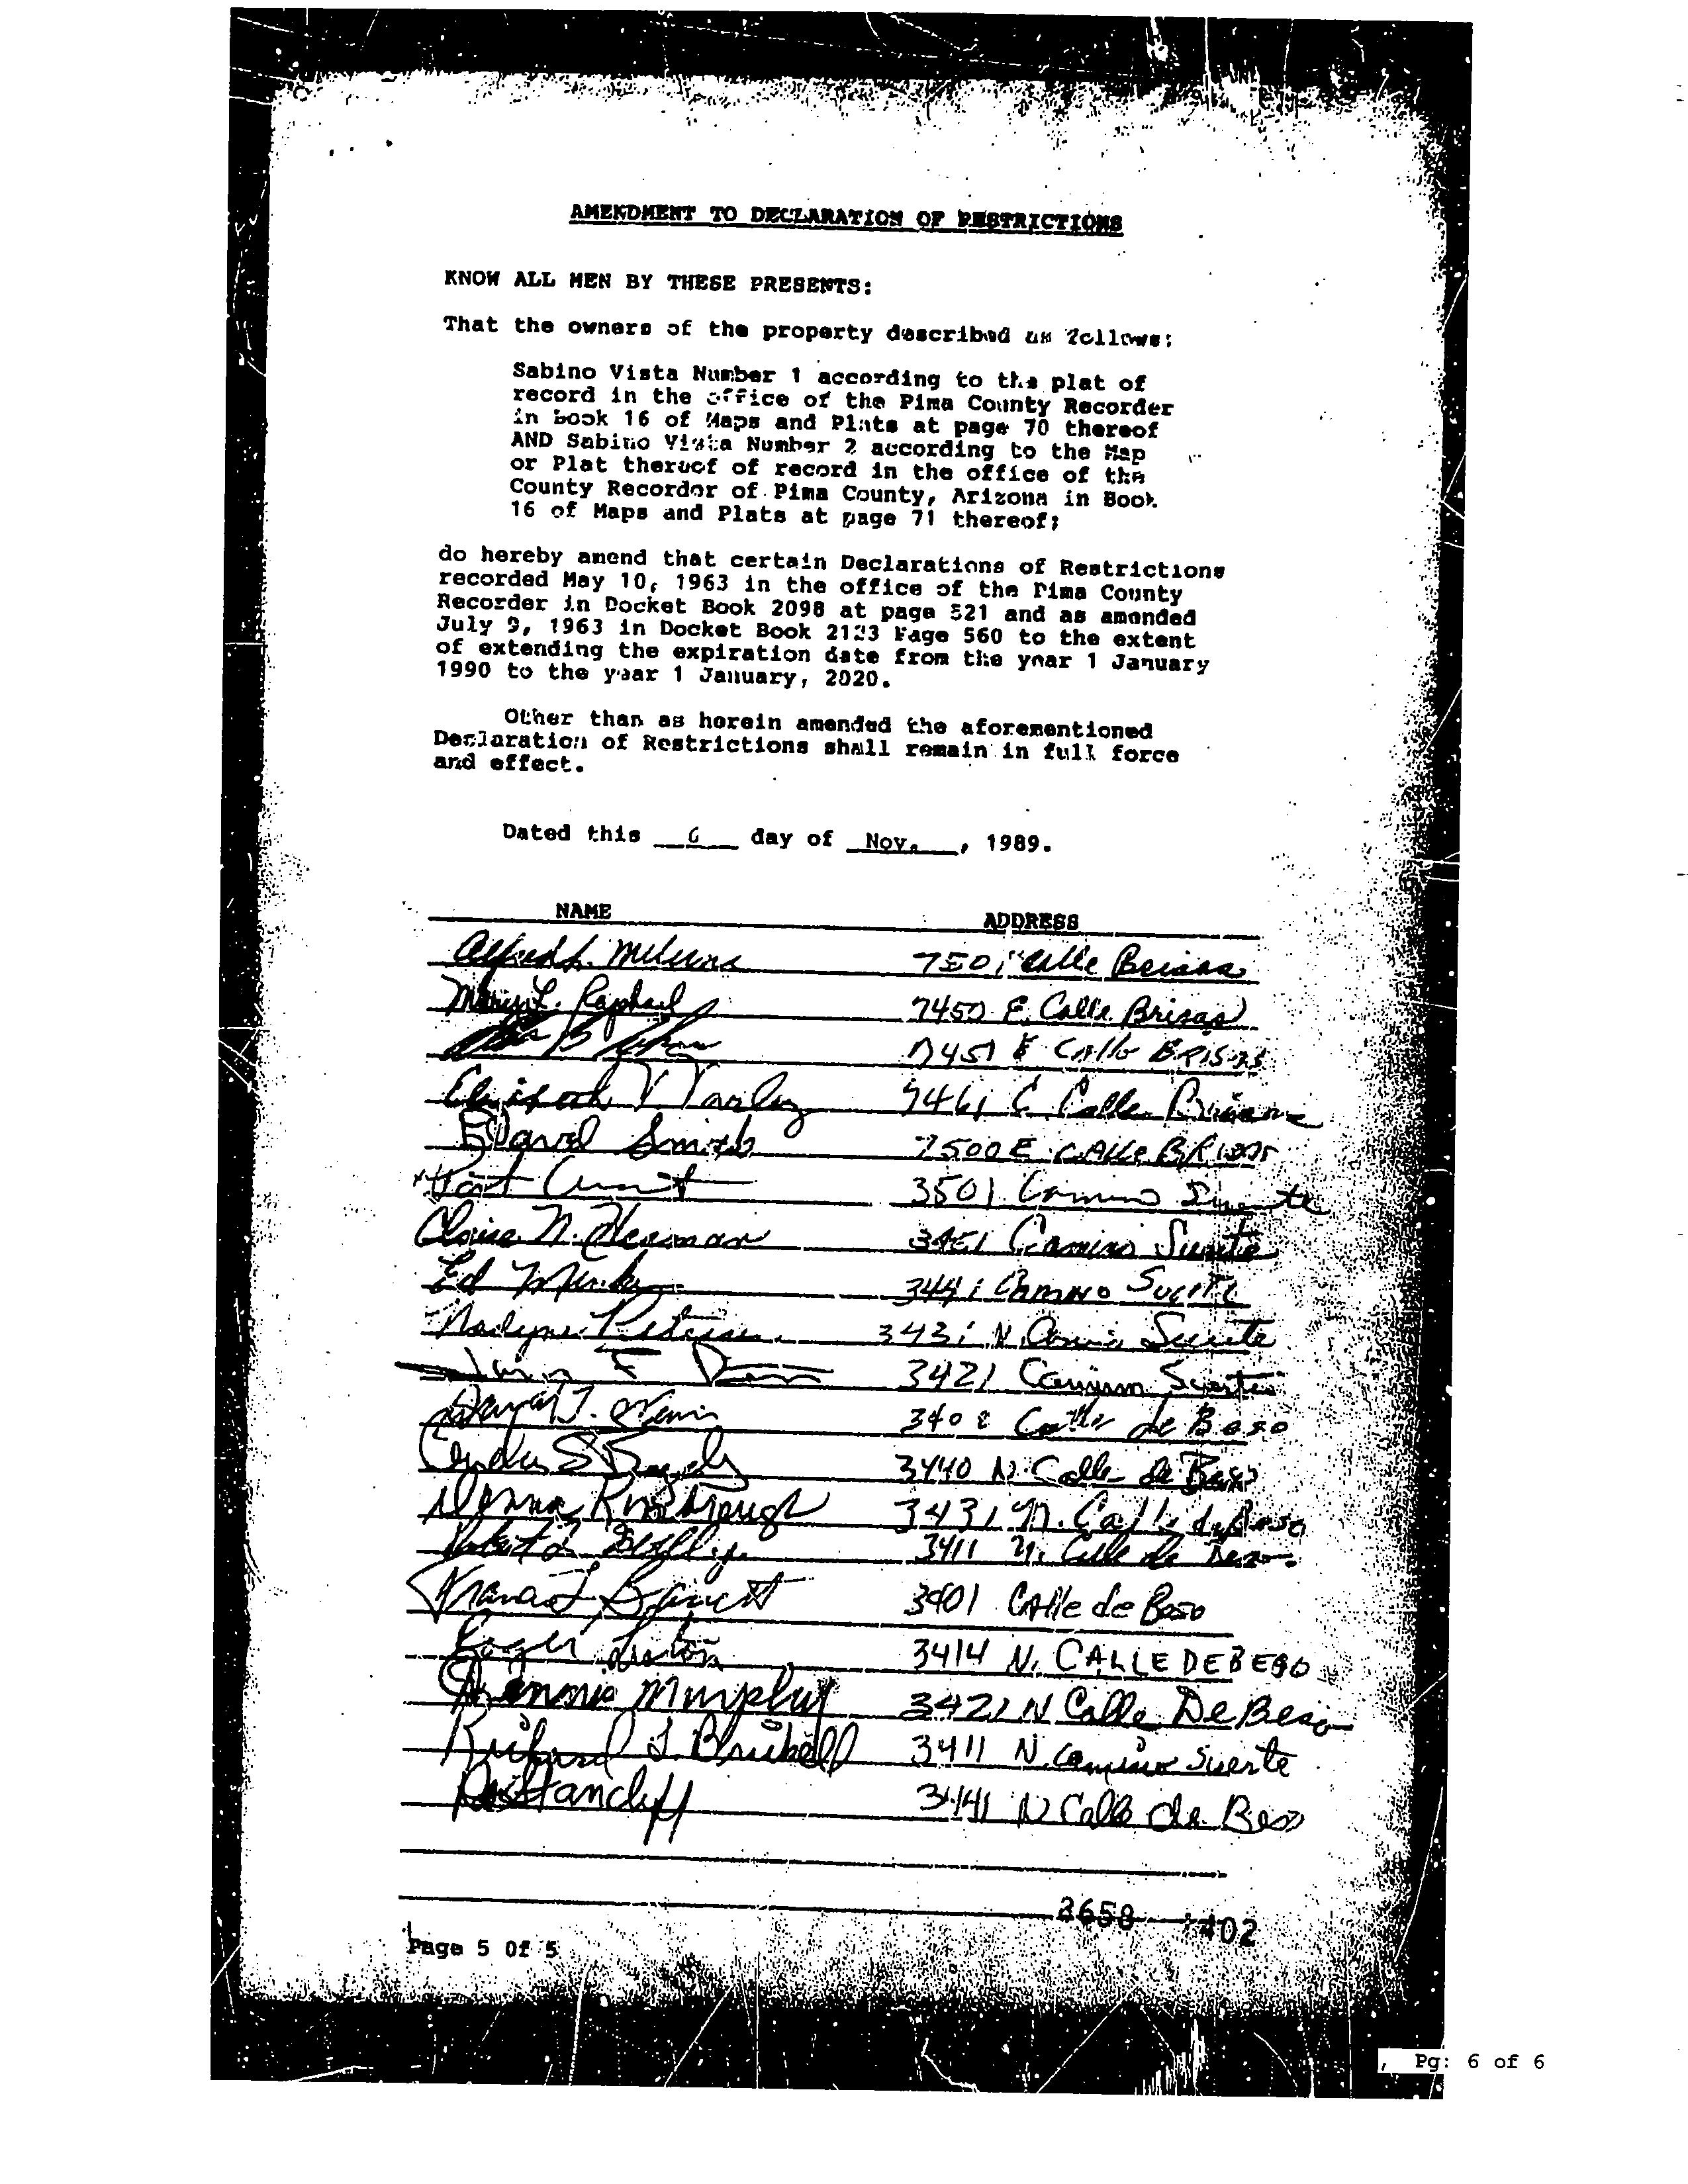 AMENDMENT TO DECLARATION OF RESTRICTIONS
KNOW ALL MEN BY THESE PRESENTS:
That the owners of the property described as follows:
Sabino Vista Number 1 according to the plat of
record in the office of the Pima County Recorder
in book 16 of Maps and Plats at page 70 thereof
AND Sabino Vista Number 2 according to the Map
or Plat thereof of record in the office of the
County Recorder of Pima County, Arizona in Book
16 of Maps and Plats at page 71 thereof;
do hereby amend that certain Declarations of Restrictions
recorded May 10, 1963 in the office of the Pima County
Recorder in Docket Book 2098 at page 521 and as amended
July 9, 1963 in Docket Book 2123 Page 560 to the extent
of extending the expiration date from the year 1 January
1990 to the year 1 January, 2020.
Other than as herein amended the aforementioned
Declaration of Restrictions shall remain in full force
and effect.
Dated this 6 day of Nov. , 1989.
NAME ADDRESS
Alfred L. 7501 Calle Brisas
L. Raphael 7450 E. Calle Brisas
7451 E Calle BRISAS
Elizabeth V 7461 E Calle
David Smith 7500 E CALLE BRISAS
3501 Camino Suerte
Claire N. 3451 Camino Suerte
Ed 3441 Camino Suerte
3431 N. Camino Suerte
F 3421 Camino Suerte
J. Calle de Beso
S 3440 N. Calle de Beso
Donna Kimbrough 3431 N. Calle de Beso
Robert L 3411 N. Calle de Beso
3401 Calle de Beso
Roger 3414 N. CALLE DE BESO
Murphy 3421 N Calle De Beso
Richard J. Brubell 3411 N. Camino Suerte
3441 N Calle de Beso
8658 1402
Page 5 Of 5
Pg: 6 of 6